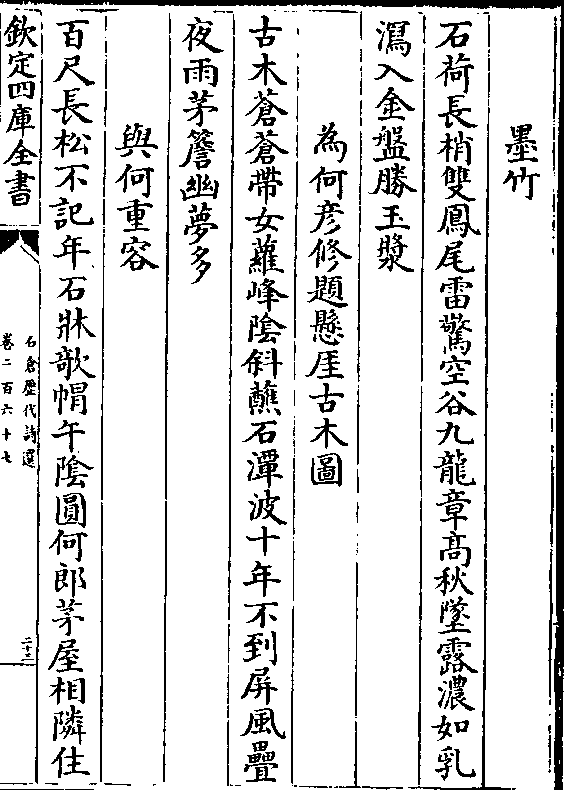 墨竹
石荷長梢雙鳳尾雷驚空谷九龍章高秋墜露濃如乳
瀉入金盤勝玉漿
為何彥修題懸厓古木圖
古木蒼蒼帶女蘿峰陰斜蘸石潭波十年不到屏風疊
夜雨茅簷幽夢多
與何重容
百尺長松不記年石牀欹帽午陰圓何郎茅屋相隣住
欽定四庫全書
石倉歷代詩選
卷二百六十七
二十三